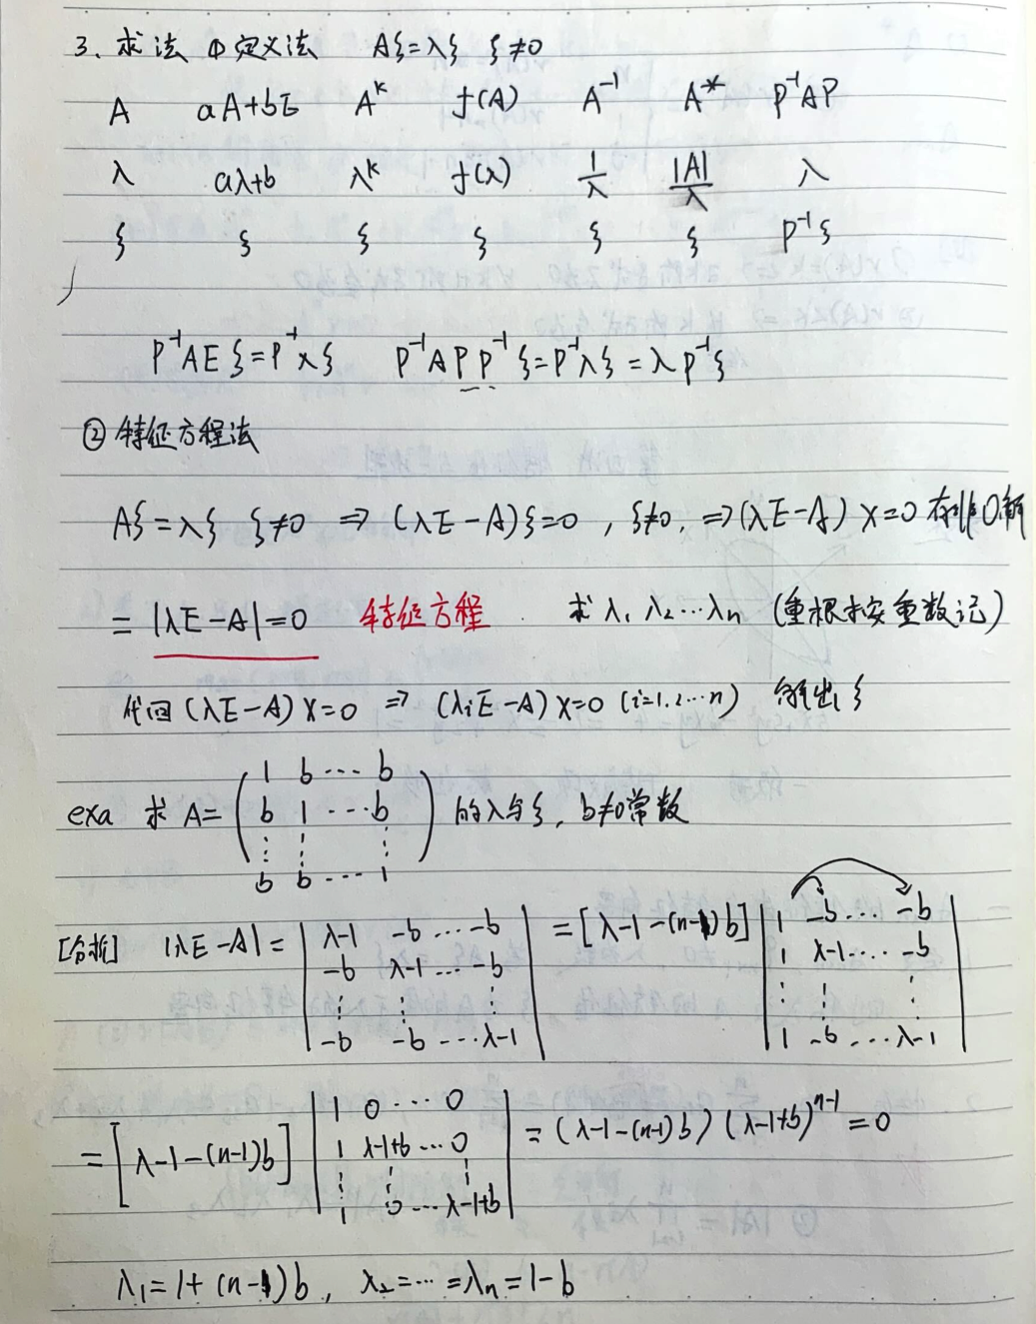 3、求法 ①定义法 Aξ=λξ ξ≠0
A aA+bE A^k f(A) A^{-1} A^* P^{-1}AP
λ aλ+b λ^k f(λ) 1/λ |A|/λ λ
ξ ξ ξ ξ ξ ξ P^{-1}ξ
P^{-1}AEξ=P^{-1}λξ P^{-1}APP^{-1}ξ=P^{-1}λξ=λP^{-1}ξ
②特征方程法
Aξ=λξ ξ≠0 ⇒(λE-A)ξ=0, ξ≠0, ⇒(λE-A)X=0有非0解
= |λE-A|=0 特征方程 求λ₁ λ₂…λn (重根按重数记)
代回(λE-A)X=0 ⇒ (λiE-A)X=0 (i=1,2…n) 解出ξ
exa 求A= ( 1 b … b
b 1 … b
⋮ ⋮ ⋮
b b … 1 ) 的λ与ξ, b≠0常数
[分析] |λE-A|= | λ-1 -b … -b
-b λ-1 … -b
⋮ ⋮ ⋮
-b -b … λ-1 | =[λ-1-(n-1)b] | 1 -b … -b
1 λ-1 … -b
⋮ ⋮ ⋮
1 -b … λ-1 |
=[λ-1-(n-1)b] | 1 0 … 0
1 λ-1+b … 0
⋮ ⋮ ⋮
1 0 … λ-1+b | =(λ-1-(n-1)b)(λ-1+b)^{n-1}=0
λ₁=1+(n-1)b, λ₂=…=λn=1-b